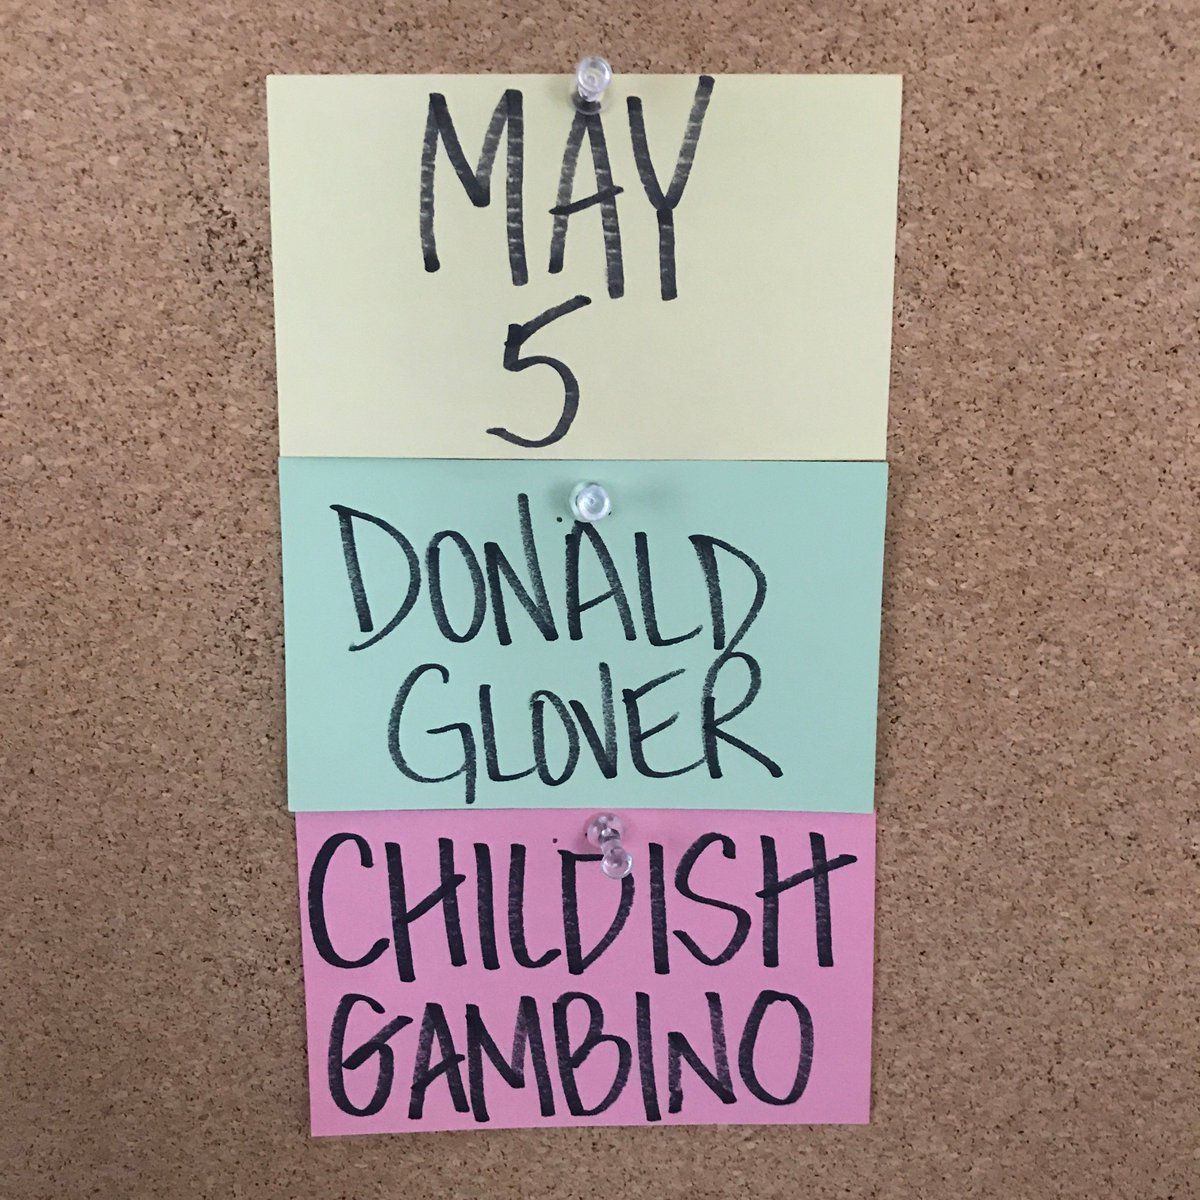 MAY
5
DONALD
GLOVER
CHILDISH
GAMBINO